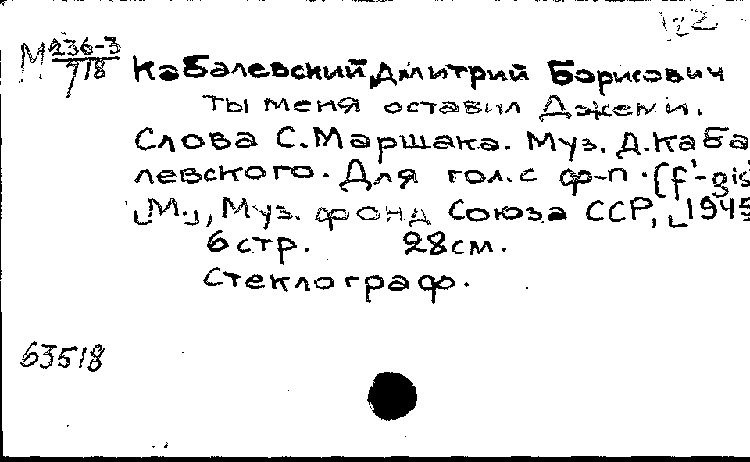 М 236-3/718
Кабалевский, Дмитрий Борисович
Ты меня оставил Джеми.
Слова С. Маршака. Муз. Д. Каба
левского. Для гол. с ф-п. (f'-gis
[М.], Муз. фонд Союза ССР, [1945
6 стр. 28 см.
Стеклограф.
63518